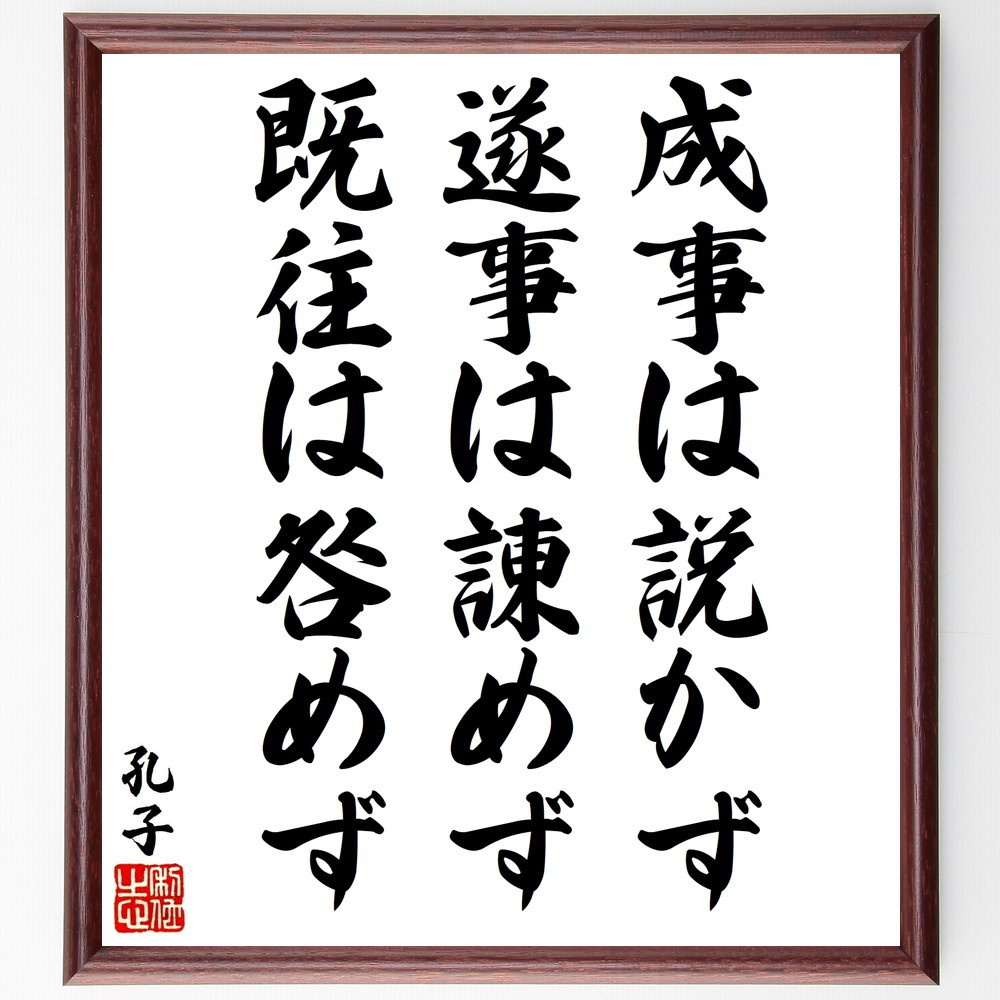 成事は説かず
遂事は諌めず
既往は咎めず
孔子